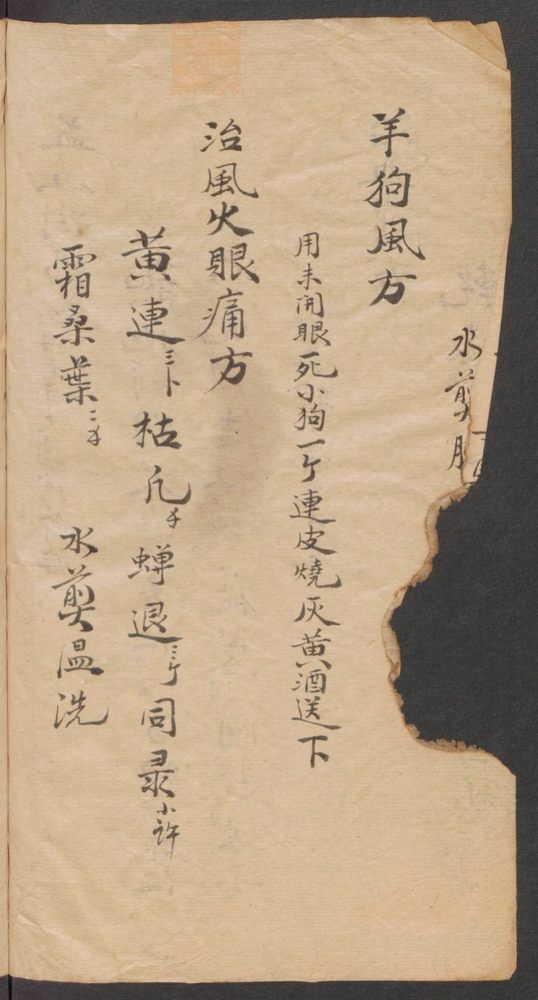 水煎服
羊狗風方
用未開眼死小狗一个連皮燒灰黃酒送下
治風火眼痛方
黃連三卜枯凡蟬退三个同录小許
霜桑葉二
水煎溫洗